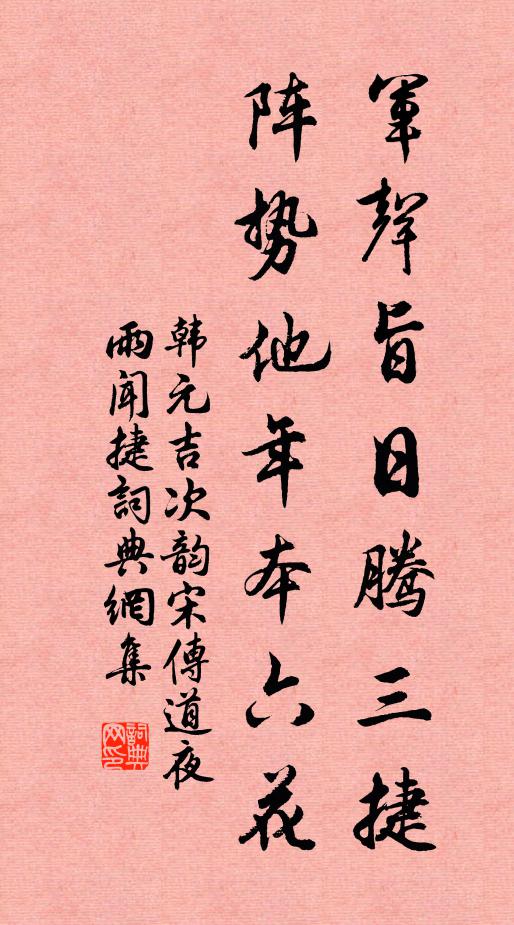 軍聲旨日腾三捷
阵势他年本六花
韩元吉次韵宋傳道夜
雨闻捷詞典網集
詞典
网印